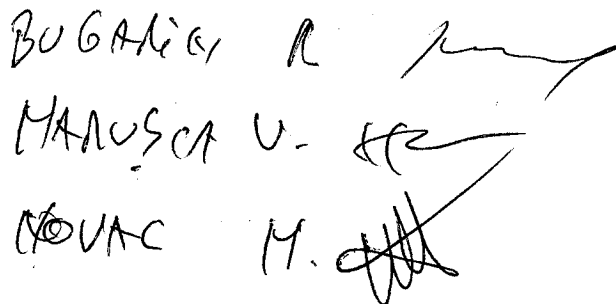 BUGARICI R
MARUȘCA V.
NOVAC M.